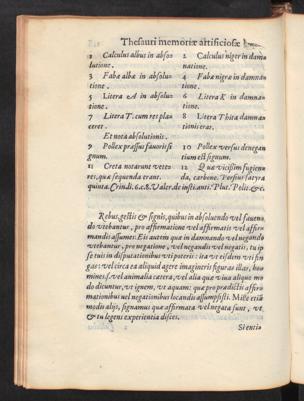 Thesauri memoriæ artificiosæ
1 Calculus albus in abso 2 Calculus niger in damna
lutione. natione.
3 Fabæ albæ in absolu 4 Fabæ nigræ in damnan
tione. tione.
5 Litera A in absolu 6 Litera K in damnan
tione. tione.
7 Litera T. cum res pla 8 Litera Thita damnan
ceret. tionis erat.
Et nota absolutionis.
9 Pollex prœssus fauoris si 10 Pollex versus denegan
gnum. tium est signum.
11 Creta notarunt vete 12 Quæ vicissim fugienu
res, quæ sequenda erant. da, carbone. Persius satyra
quinta. Crini.li.6.c.8. Valer. de insti.anti. Plut. Polit. &c.
Rebus, gestis & signis, quibus in absoluendo vel fauen
do vtebantur, pro affirmatione vel affirmatis vel affir
mandis assumes: Et autem qua in damnando vel negando
vtebantur, pro negatione, vel negandis vel negatis: tu ip
se tuis in disputationibus vti poteris: ita vt eisdem vti fin
gas: vel circa ea aliquid agere imagineris figuras illas, ho
mines. vel animalia cætera, vel alia quæ viua aliquo mo
do dicuntur, vt ignem, vt aquam: quæ pro prædictis affir
mationibus uel negationibus locandis assumpsisti. Mille etiā
modis alijs, signamus quæ affirmata vel negata sunt, vt
& tu legens experientia disces.
Si entia